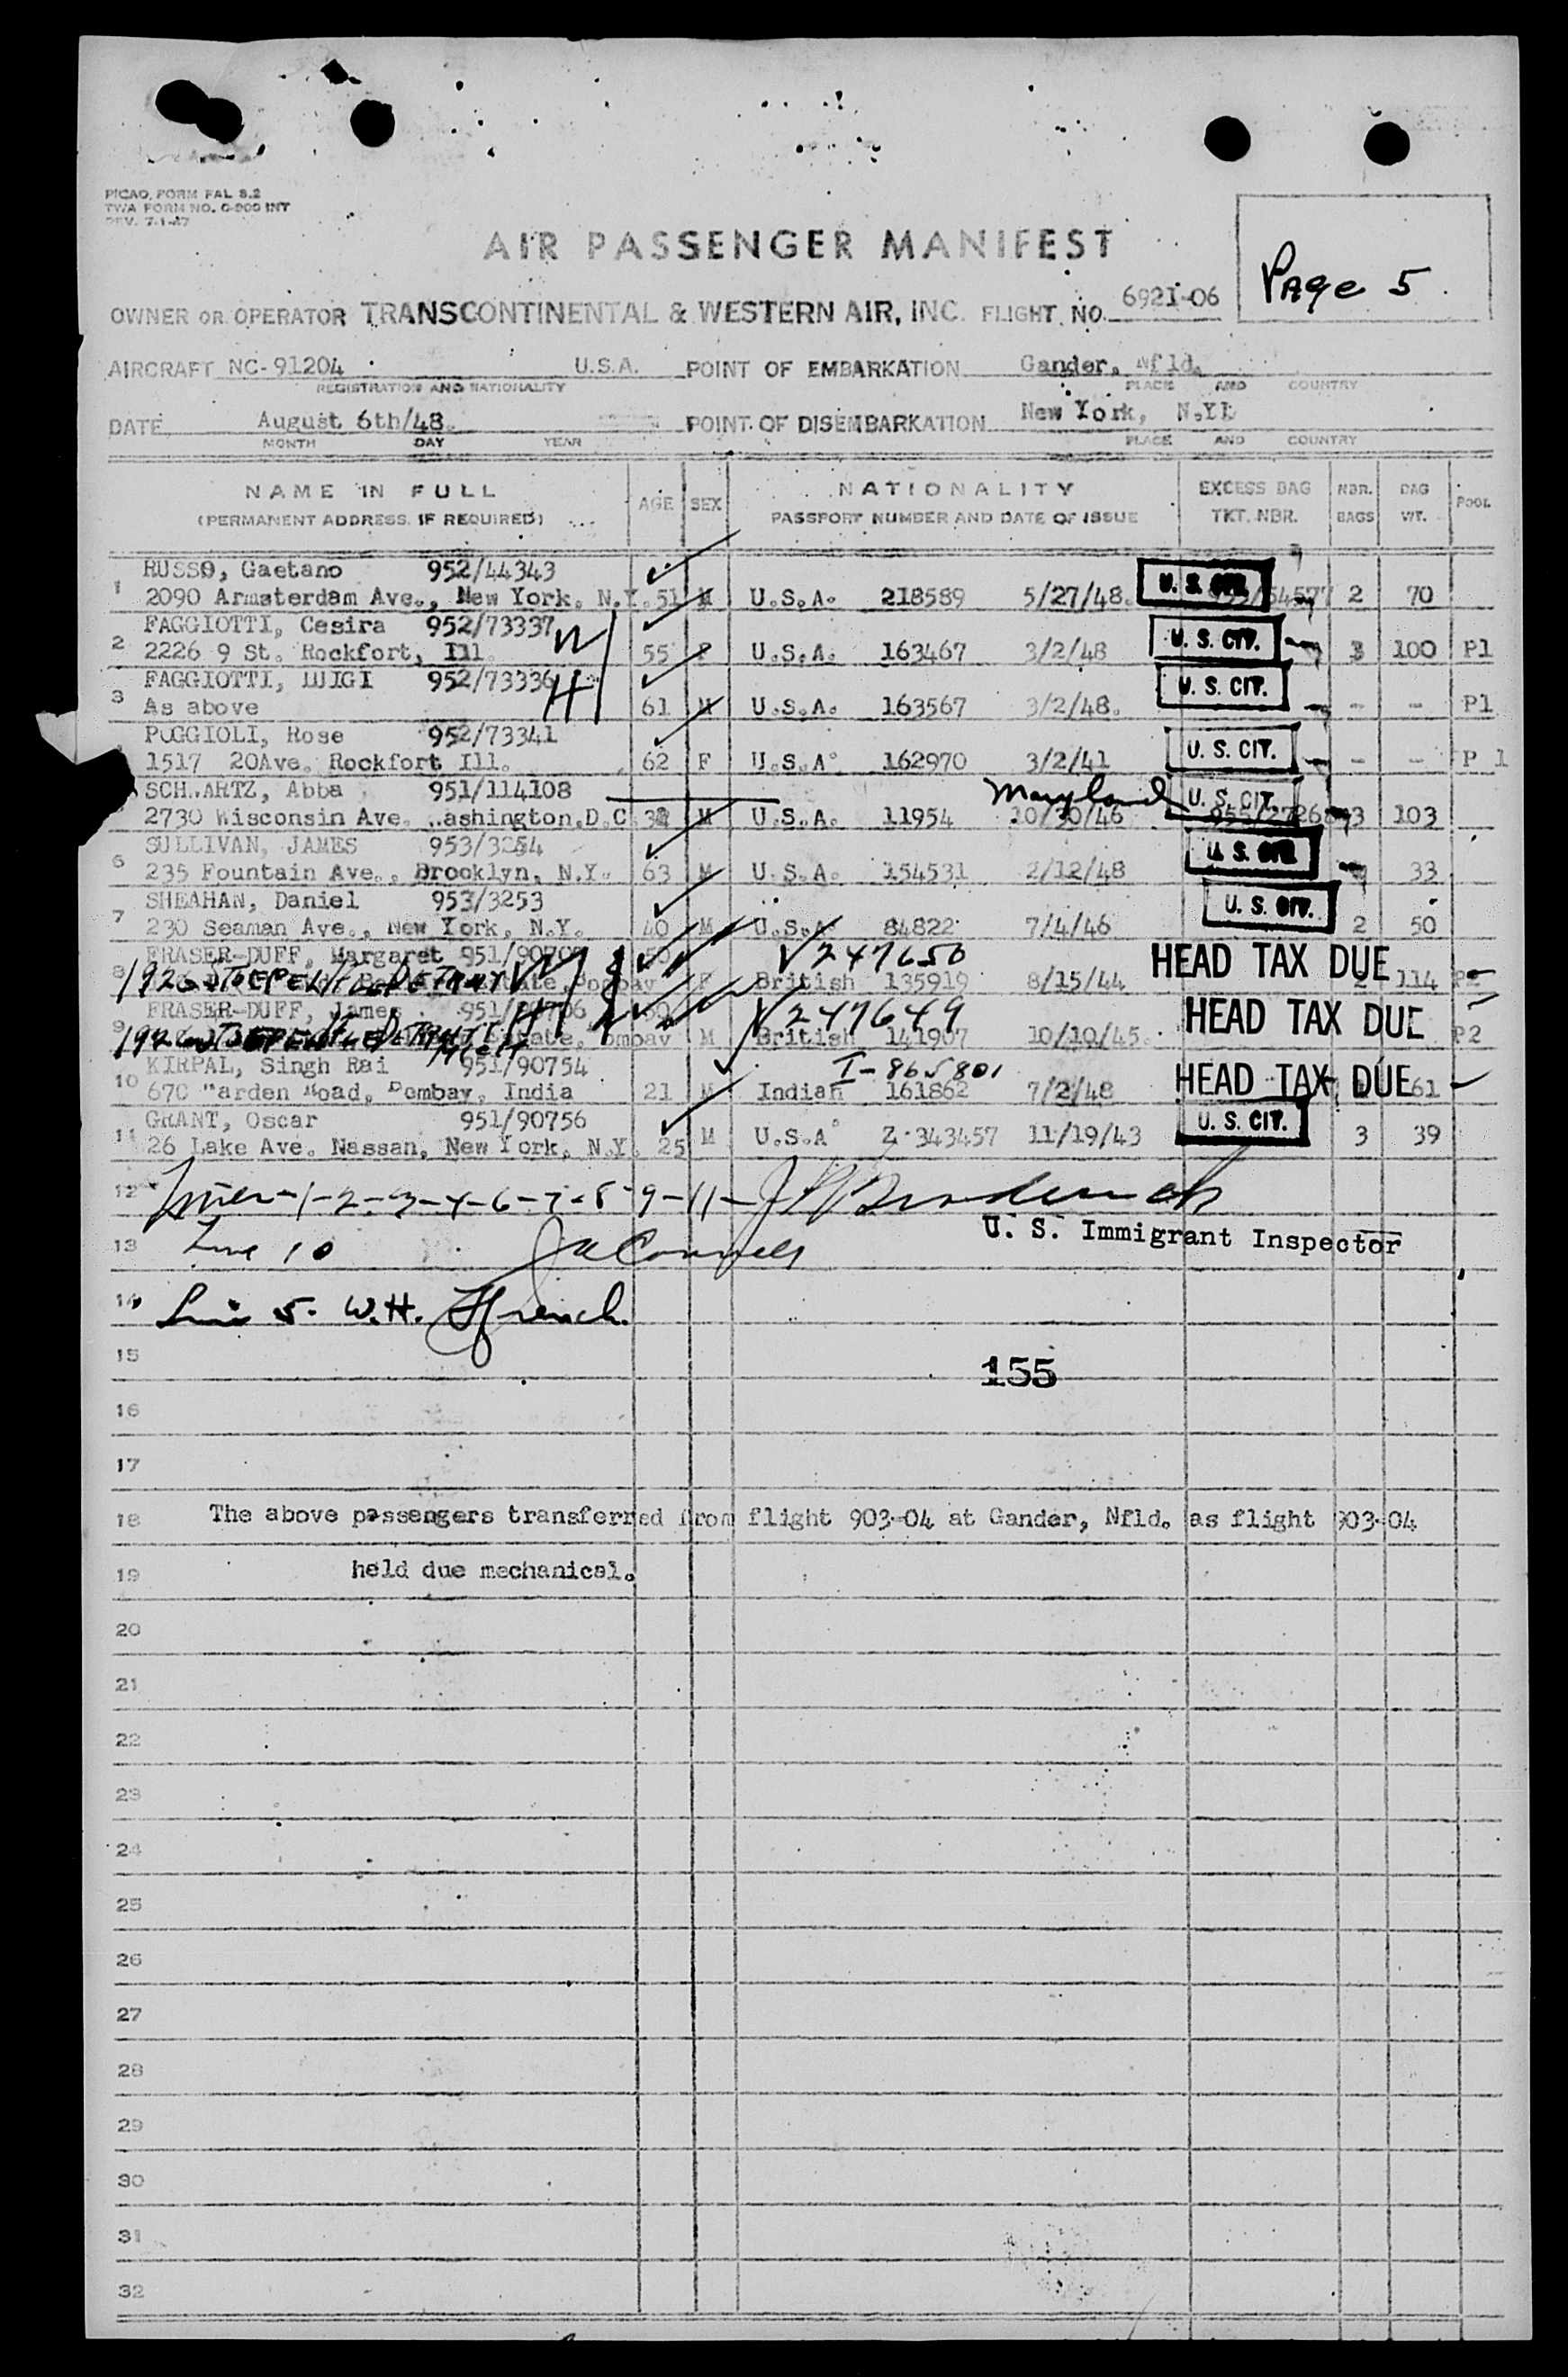 PICAO FORM FAL 8.2
TWA FORM NO. C-900 INT
REV. 7-1-47
AIR PASSENGER MANIFEST
Page 5
OWNER OR OPERATOR TRANSCONTINENTAL & WESTERN AIR, INC. FLIGHT NO. 692I-06
AIRCRAFT NC-91204 U.S.A. POINT OF EMBARKATION Gander, Nfld.
REGISTRATION AND NATIONALITY PLACE AND COUNTRY
DATE August 6th/48. POINT OF DISEMBARKATION New York, N.Y.
MONTH DAY YEAR PLACE AND COUNTRY
NAME IN FULL AGE SEX NATIONALITY EXCESS BAG NBR. BAG POOL
(PERMANENT ADDRESS IF REQUIRED) PASSPORT NUMBER AND DATE OF ISSUE TKT. NBR. BAGS WT.
RUSSO, Gaetano 952/44343
1 2090 Armsterdam Ave., New York, N.Y. 51 M U.S.A. 218589 5/27/48. U. S. CIT. 2 70
FAGGIOTTI, Cesira 952/73337 W
2 2226 9 St. Rockfort, Ill. 55 F U.S.A. 163467 3/2/48 U. S. CIT. 3 100 P1
FAGGIOTTI, LUIGI 952/73336 H
3 As above 61 M U.S.A. 163567 3/2/48. U. S. CIT. - - P1
POGGIOLI, Rose 952/73341
1517 20Ave. Rockfort Ill. 62 F U.S.A. 162970 3/2/41 U. S. CIT. - - P 1
SCH..ARTZ, Abba 951/114108 Maryland
2730 Wisconsin Ave. ..ashington.D.C M U.S.A. 11954 10/30/46 U. S. CIT. 3 103
SULLIVAN, JAMES 953/3254
6 235 Fountain Ave., Brooklyn, N.Y. 63 M U.S.A. 154531 2/12/48 U. S. CIT. 33
SHEAHAN, Daniel 953/3253
7 230 Seaman Ave., New York, N.Y. 40 M U.S.A 84822 7/4/46 U. S. CIT. 2 50
FRASER-DUFF, Margaret W 247650
8 F British 135919 8/15/44 HEAD TAX DUE 2 114 P2
FRASER-DUFF, James H 247649
9 M British 141967 10/10/45. HEAD TAX DUE P2
KIRPAL, Singh Rai 951/90754 I-865801
10 67C "arden Road, Bombay, India 21 M Indian 161862 7/2/48 HEAD TAX DUE 61
GRANT, Oscar 951/90756
11 26 Lake Ave. Nassan, New York, N.Y. 25 M U.S.A Z 343457 11/19/43 U. S. CIT. 3 39
12 1-2-3-4-6-7-8-9-11-
U. S. Immigrant Inspector
13 Line 10
14 Line 5. W.H. Ffrench.
15
155
16
17
18 The above passengers transferred from flight 903-04 at Gander, Nfld. as flight 903-04
19 held due mechanical.
20
21
22
23
24
25
26
27
28
29
30
31
32